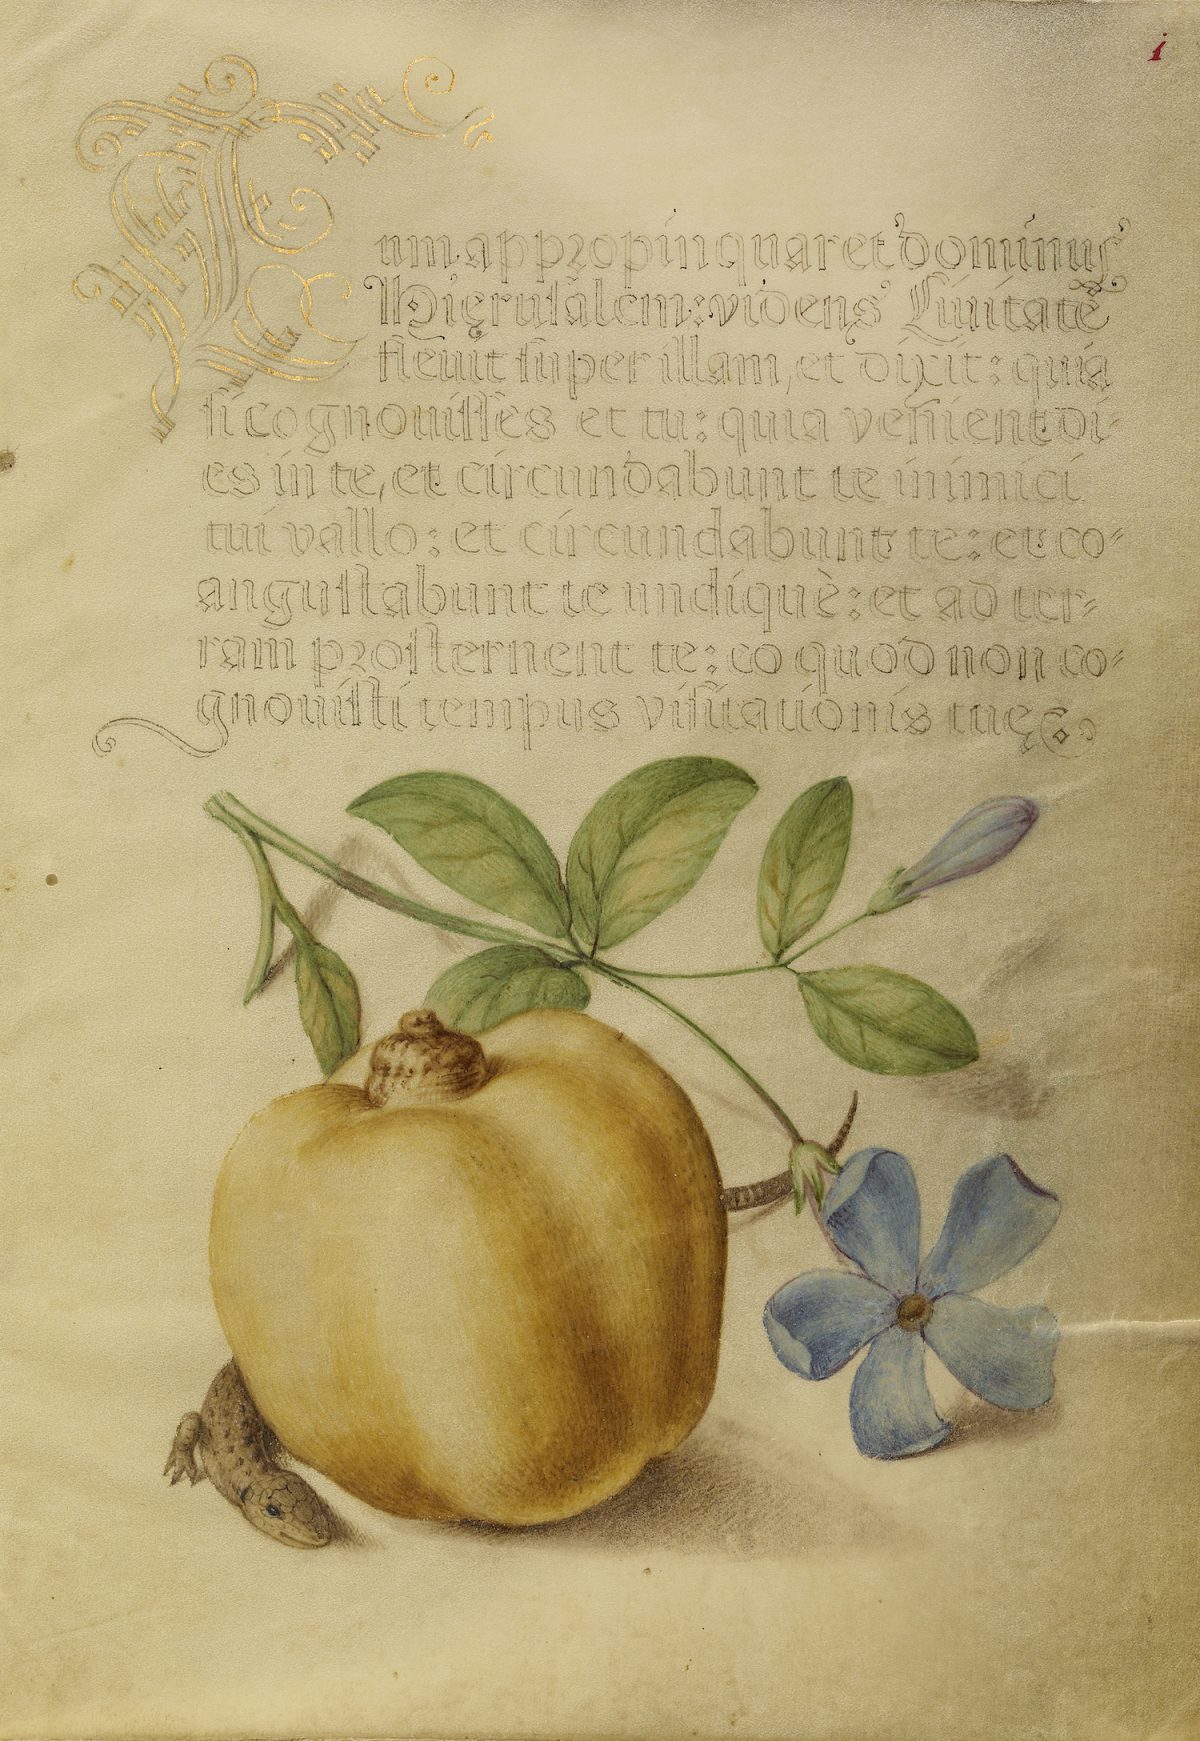 i
Cum appropinquaret dominus
Hieruſalem: videns Ciuitatē
fleuit ſuper illam, et dixit: quia
ſi cognouiſſes et tu: quia venient di-
es in te, et circundabunt te inimici
tui vallo: et circundabunt te: et co-
anguſtabunt te undiquè: et ad ter-
ram proſternent te: eo quod non co-
gnouiſti tempus viſitationis tuę